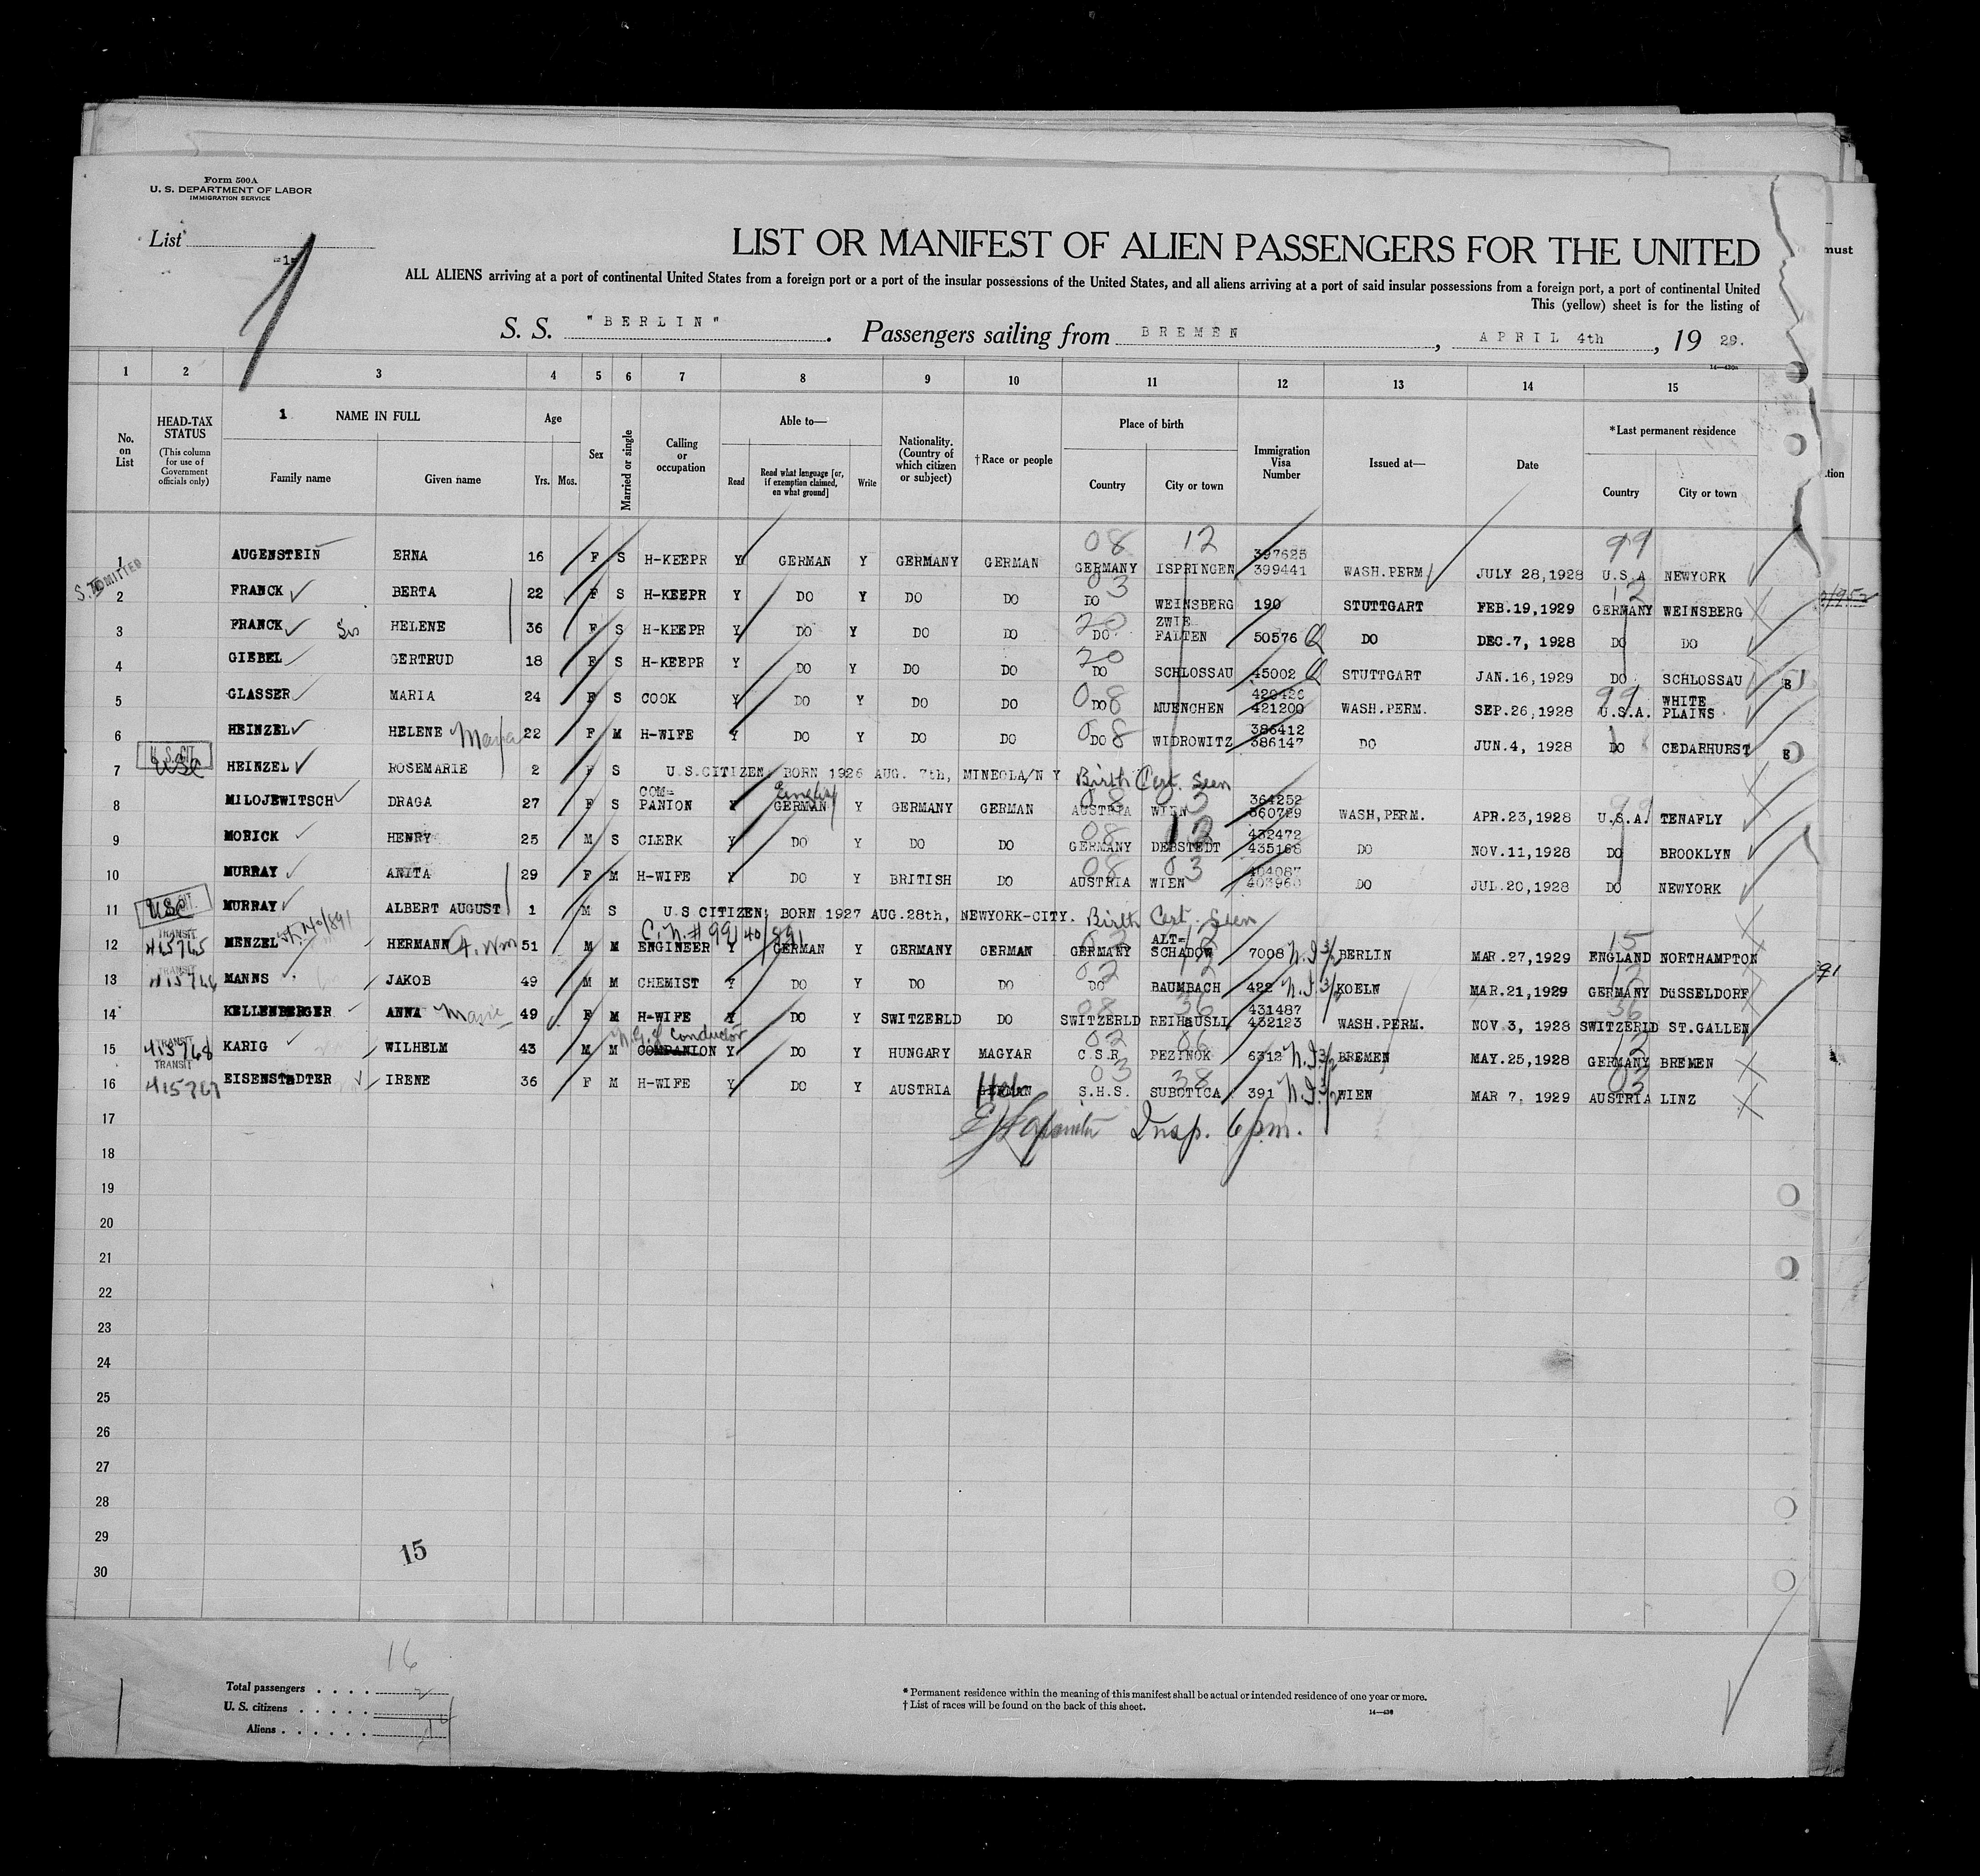 Form 500A
U. S. DEPARTMENT OF LABOR
IMMIGRATION SERVICE
List
-1-
1
LIST OR MANIFEST OF ALIEN PASSENGERS FOR THE UNITED
ALL ALIENS arriving at a port of continental United States from a foreign port or a port of the insular possessions of the United States, and all aliens arriving at a port of said insular possessions from a foreign port, a port of continental United
This (yellow) sheet is for the listing of
S. S. "BERLIN". Passengers sailing from BREMEN, APRIL 4th, 19 29.
1 2 3 4 5 6 7 8 9 10 11 12 13 14 15
No. on List
HEAD-TAX STATUS (This column for use of Government officials only)
1 NAME IN FULL
Family name Given name
Age Yrs. Mos.
Sex
Married or single
Calling or occupation
Able to—
Read Read what language [or, if exemption claimed, on what ground] Write
Nationality. (Country of which citizen or subject)
†Race or people
Place of birth
Country City or town
Immigration Visa Number
Issued at—
Date
*Last permanent residence
Country City or town
08 12 99
1 AUGENSTEIN ERNA 16 F S H-KEEPR Y GERMAN Y GERMANY GERMAN GERMANY ISPRINGEN 397625 399441 WASH.PERM JULY 28,1928 U.S.A NEWYORK
03 12
2 FRANCK BERTA 22 F S H-KEEPR Y DO Y DO DO DO WEINSBERG 190 STUTTGART FEB.19,1929 GERMANY WEINSBERG
20
3 FRANCK Sis HELENE 36 F S H-KEEPR Y DO Y DO DO DO ZWIE FALTEN 50576 Q DO DEC.7, 1928 DO DO
20
4 GIEBEL GERTRUD 18 F S H-KEEPR Y DO Y DO DO DO SCHLOSSAU 45002 Q STUTTGART JAN.16,1929 DO SCHLOSSAU
08 99
5 GLASSER MARIA 24 F S COOK Y DO Y DO DO DO MUENCHEN 420426 421200 WASH.PERM. SEP.26,1928 U.S.A. WHITE PLAINS
08
6 HEINZEL HELENE Maria 22 F M H-WIFE Y DO Y DO DO DO WIDROWITZ 386412 386147 DO JUN.4, 1928 DO CEDARHURST
7 U.S.CIT USC HEINZEL ROSEMARIE 2 F S U.S.CITIZEN, BORN 1926 AUG. 7th, MINEOLA/N Y Birth Cert. Seen
8 MILOJEWITSCH DRAGA 27 F S COM-PANION Y English GERMAN Y GERMANY GERMAN AUSTRIA WIEN 364252 360789 WASH,PERM. APR.23,1928 U.S.A. TENAFLY
08 12
9 MORICK HENRY 25 M S CLERK Y DO Y DO DO GERMANY DEBSTEDT 432472 435168 DO NOV.11,1928 DO BROOKLYN
08 03
10 MURRAY ANITA 29 F M H-WIFE Y DO Y BRITISH DO AUSTRIA WIEN 404087 403960 DO JUL.20,1928 DO NEWYORK
11 USC MURRAY ALBERT AUGUST 1 M S U.S CITIZEN; BORN 1927 AUG.28th, NEWYORK-CITY. Birth Cert. Seen
C.N.# 99/40/891
12 TRANSIT 415765 MENZEL HERMANN 51 M M ENGINEER Y GERMAN Y GERMANY GERMAN GERMANY ALT-SCHADOW 7008 BERLIN MAR.27,1929 ENGLAND NORTHAMPTON
13 TRANSIT MANNS JAKOB 49 M M CHEMIST Y DO Y DO DO DO BAUMBACH 422 KOELN MAR.21,1929 GERMANY DüSSELDORF
14 KELLENBERGER ANNA Marie 49 F M H-WIFE Y DO Y SWITZERLD DO SWITZERLD REIHAUSLI 431487 432123 WASH.PERM. NOV 3, 1928 SWITZERLD ST.GALLEN
Conductor
15 TRANSIT 415768 KARIG WILHELM 43 M M COMPANION Y DO Y HUNGARY MAGYAR C S R PEZINOK 6312 BREMEN MAY.25,1928 GERMANY BREMEN
16 TRANSIT 415767 EISENSTADTER IRENE 36 F M H-WIFE Y DO Y AUSTRIA GERMAN Heb S.H.S. SUBOTICA 391 WIEN MAR 7, 1929 AUSTRIA LINZ
17 Insp. 6 pm.
18
19
20
21
22
23
24
25
26
27
28
29 15
30
16
Total passengers
U. S. citizens 2
Aliens 14
* Permanent residence within the meaning of this manifest shall be actual or intended residence of one year or more.
† List of races will be found on the back of this sheet.
14—430